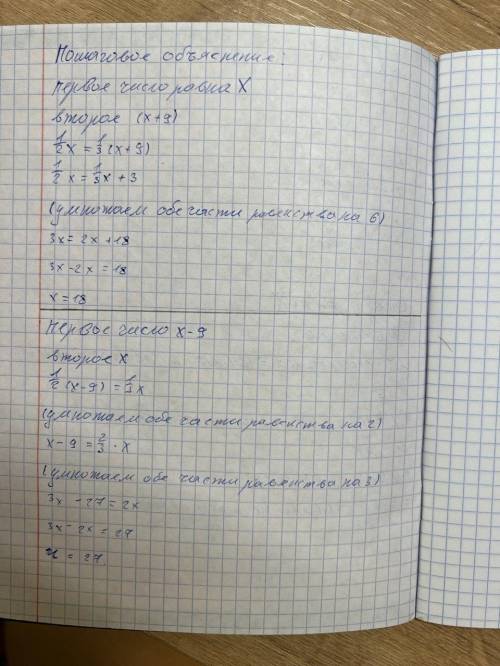 Пошаговое объяснение:
первое число равна X
второе (x+9)
1/2 x = 1/3 (x+9)
1/2 x = 1/3 x + 3
(умножаем обе части равенства на 6)
3x = 2x + 18
3x - 2x = 18
x = 18
Первое число x - 9
второе x
1/2 (x - 9) = 1/3 x
(умножаем обе части равенства на 2)
x - 9 = 2/3 · x
(умножаем обе части равенства на 3)
3x - 27 = 2x
3x - 2x = 27
x = 27.